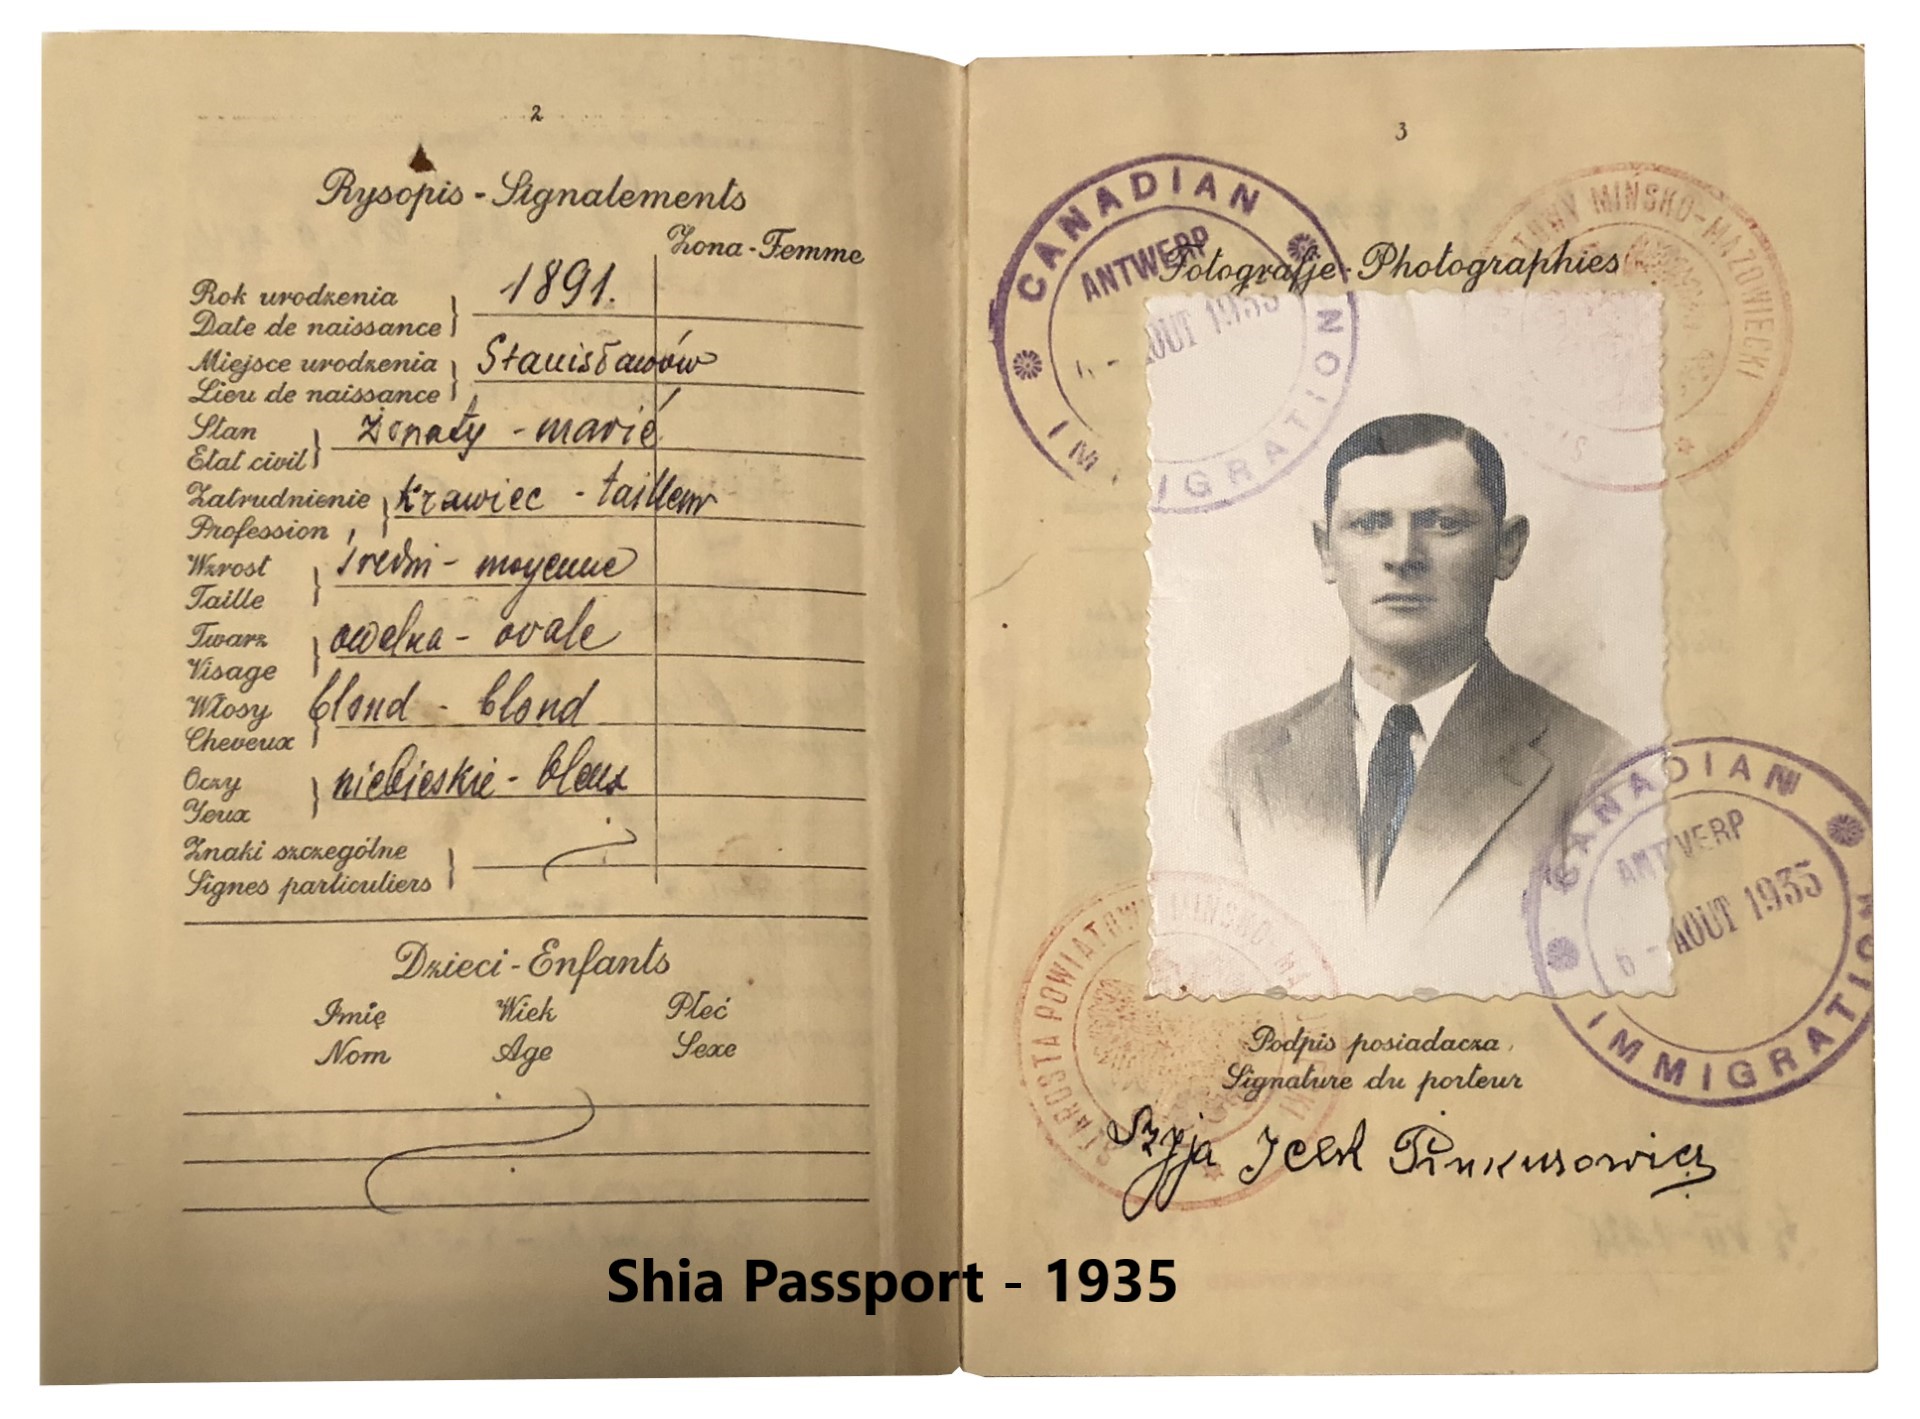 2
Rysopis - Signalements
Żona - Femme
Rok urodzenia
Date de naissance
1891.
Miejsce urodzenia
Lieu de naissance
Stanisławów
Stan
Etat civil
Żonaty - marié
Zatrudnienie
Profession
krawiec - tailleur
Wzrost
Taille
średni - moyenne
Twarz
Visage
owalna - ovale
Włosy
Cheveux
blond - blond
Oczy
Yeux
niebieskie - bleus
Znaki szczególne
Signes particuliers
Dzieci - Enfants
Imię Wiek Płeć
Nom Age Sexe
3
CANADIAN
IMMIGRATION
ANTWERP
6 - AOUT 1935
POWIATOWY MIŃSKO-MAZOWIECKI
Fotografje - Photographies
CANADIAN
IMMIGRATION
ANTWERP
6 - AOUT 1935
STAROSTA POWIATOWY MIŃSKO-MAZOWIECKI
Podpis posiadacza
Signature du porteur
Szyja Icek Pinkusowicz
Shia Passport - 1935